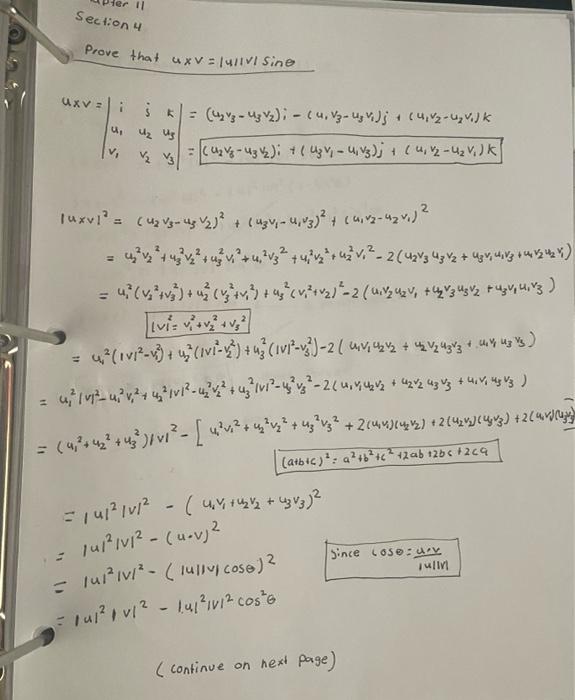 Chapter 11
Section 4
Prove that u×v = |u||v| sinθ
u×v = | i j k | = (u₂v₃-u₃v₂)i - (u₁v₃-u₃v₁)j + (u₁v₂-u₂v₁)k
| u₁ u₂ u₃ |
| v₁ v₂ v₃ | = (u₂v₃-u₃v₂)i + (u₃v₁-u₁v₃)j + (u₁v₂-u₂v₁)k
|u×v|² = (u₂v₃-u₃v₂)² + (u₃v₁-u₁v₃)² + (u₁v₂-u₂v₁)²
= u₂²v₃²+u₃²v₂²+u₃²v₁²+u₁²v₃²+u₁²v₂²+u₂²v₁²-2(u₂v₃u₃v₂+u₃v₁u₁v₃+u₁v₂u₂v₁)
= u₁²(v₂²+v₃²)+u₂²(v₃²+v₁²)+u₃²(v₁²+v₂)²-2(u₁v₂u₂v₁+u₂v₃u₃v₂+u₃v₁u₁v₃)
|v|² = v₁²+v₂²+v₃²
= u₁²(|v|²-v₁²)+u₂²(|v|²-v₂²)+u₃²(|v|²-v₃²)-2(u₁v₁u₂v₂+u₂v₂u₃v₃+u₁v₁u₃v₃)
= u₁²|v|²-u₁²v₁²+u₂²|v|²-u₂²v₂²+u₃²|v|²-u₃²v₃²-2(u₁v₁u₂v₂+u₂v₂u₃v₃+u₁v₁u₃v₃)
= (u₁²+u₂²+u₃²)|v|²-[u₁²v₁²+u₂²v₂²+u₃²v₃²+2(u₁v₁)(u₂v₂)+2(u₂v₂)(u₃v₃)+2(u₁v₁)(u₃v₃)]
(a+b+c)² = a²+b²+c²+2ab+2bc+2ca
= |u|²|v|² - (u₁v₁+u₂v₂+u₃v₃)²
= |u|²|v|² - (u·v)²
since cosθ = u·v / |u||v|
= |u|²|v|² - (|u||v|cosθ)²
= |u|²|v|² - |u|²|v|²cos²θ
(continue on next page)